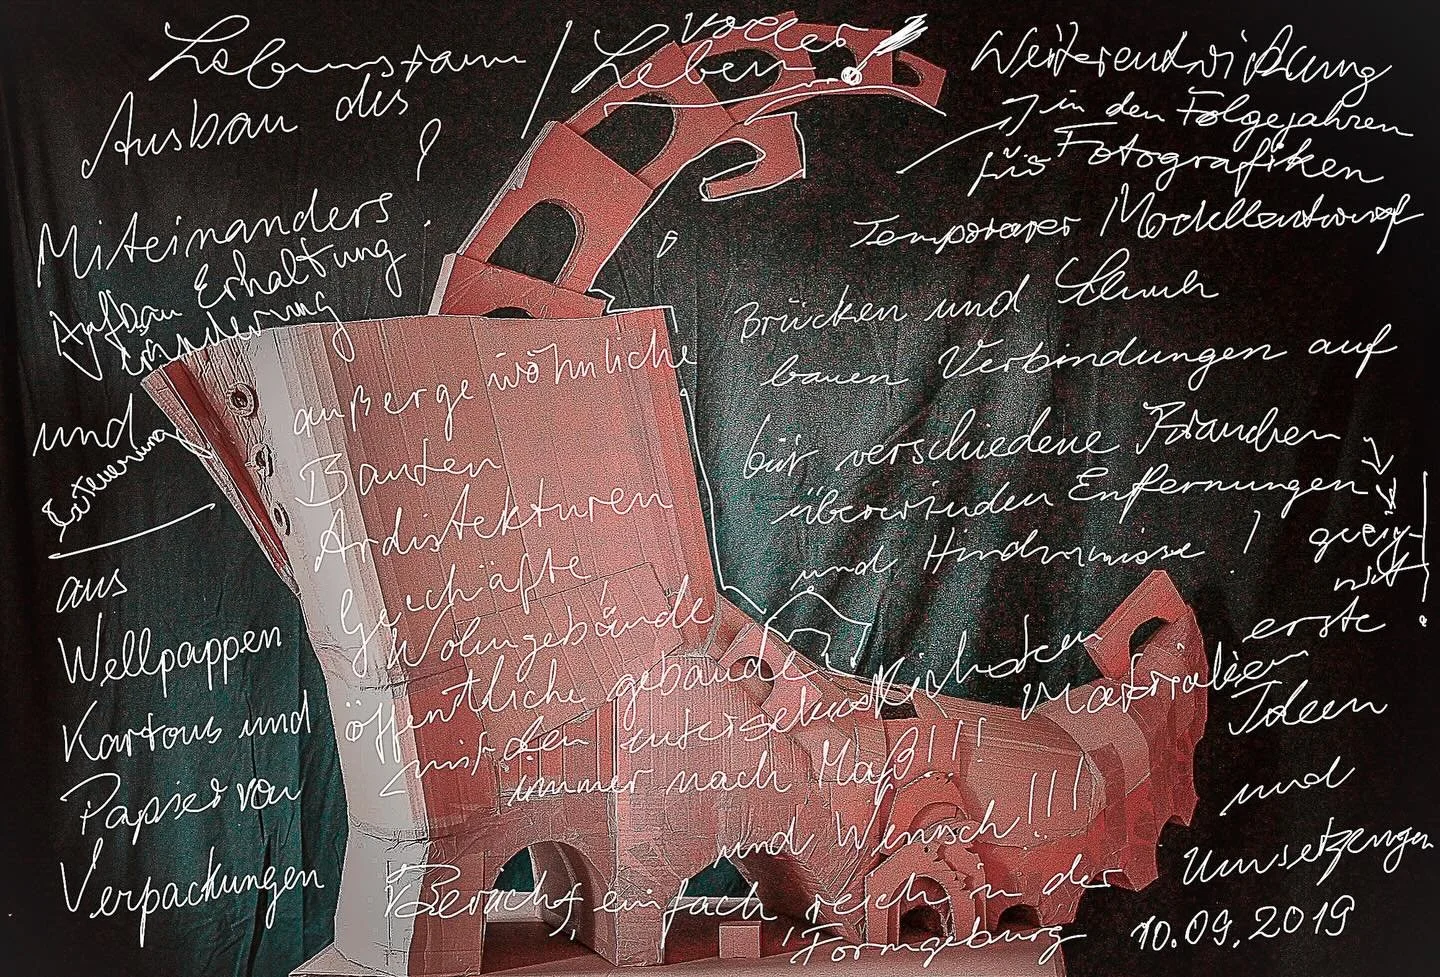 Lebensraum / voller
Leben
Ausbau des
Miteinanders
Aufbau Erhaltung
Änderung
und
Erneuerung
aus
Wellpappen
Kartons und
Papier von
Verpackungen
außergewöhnliche
Bauten
Architekturen
Geschäfte,
Wohngebäude
öffentliche gebäude
mit den
Materialien
immer nach Maß!!!
und Wunsch!!!
einfach reich in der
Formgebung
Weiterentwicklung
in den Folgejahren
für Fotografiken
Temporärer Modellentwurf
Brücken und Schuh
bauen Verbindungen auf
für verschiedene Branchen
überwinden Entfernungen
und Hindernisse !
geeig-
net
erste
Ideen
und
Umsetzungen
10.09.2019